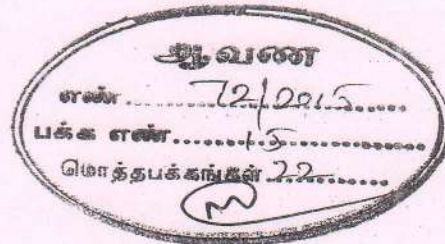 ஆவண
எண் 72/2015
பக்க எண் 15
மொத்தபக்கங்கள் 22